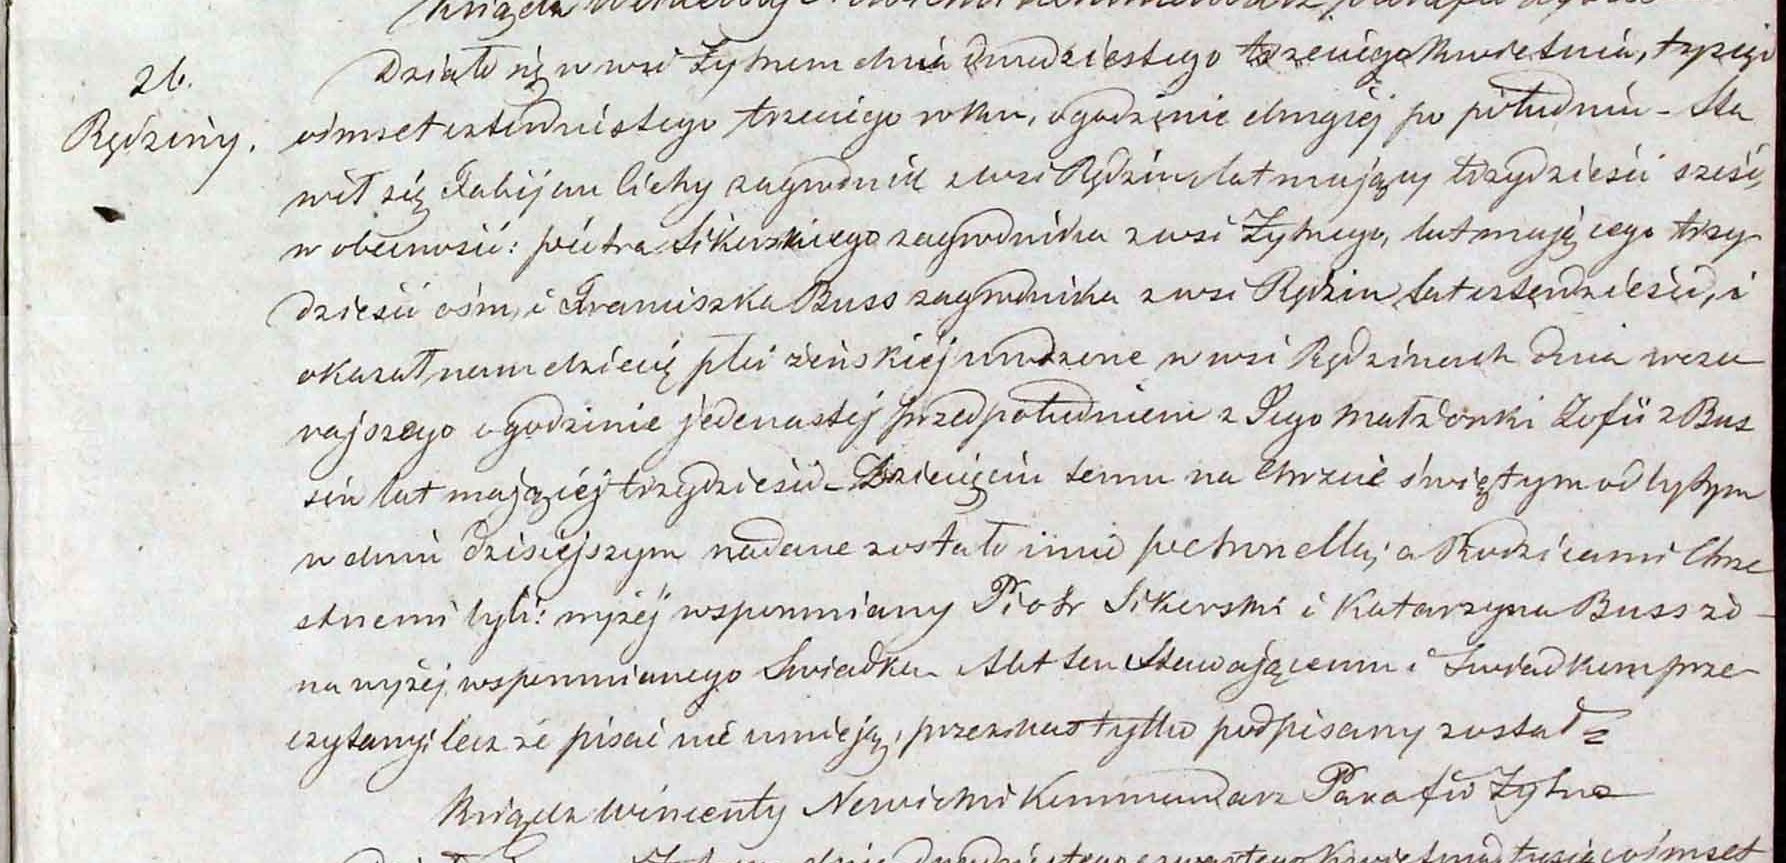 Książdz Wincenty
26.
Rędziny.
Działo się w wsi Żytnem dnia dwudziestego trzeciego kwietnia, tysiąc
ośmset czterdziestego trzeciego roku, o godzinie drugiej po południu – Sta
wił się Fabijan Cichy zagrodnik z wsi Rędzin lat mający trzydzieści sześć,
w obecności: piotra Sikerskiego zagrodnika z wsi Żytnego, lat mającego trzy
dzieści ośm, i Franciszka Buss zagrodnika z wsi Rędzin lat czterdzieści, i
okazał nam dziecię płci żeńskiej urodzone w wsi Rędzinach dnia wczo
rajszego o godzinie jedenastej przed południem z Jego małżonki Zofii z Bus
sów lat mającej trzydzieści – Dziecięciu temu na Chrzcie świętym odbytym
w dniu dzisiejszym nadane zostało imie petronella; a Rodzicami Chrze
stnemi byli: wyżej wspomniany Piotr Sikerski i Katarzyna Buss żo-
na wyżej wspomnianego Swiadka – Akt ten Stawającemu i Swiadkom prze
czytany, lecz że pisać nie umieją, przez nas tylko podpisany został =
Książdz Wincenty Nowicki Kommendarz Parafii Żytno
dnia dwudziestego czwartego Kwietnia tysiąc ośmset